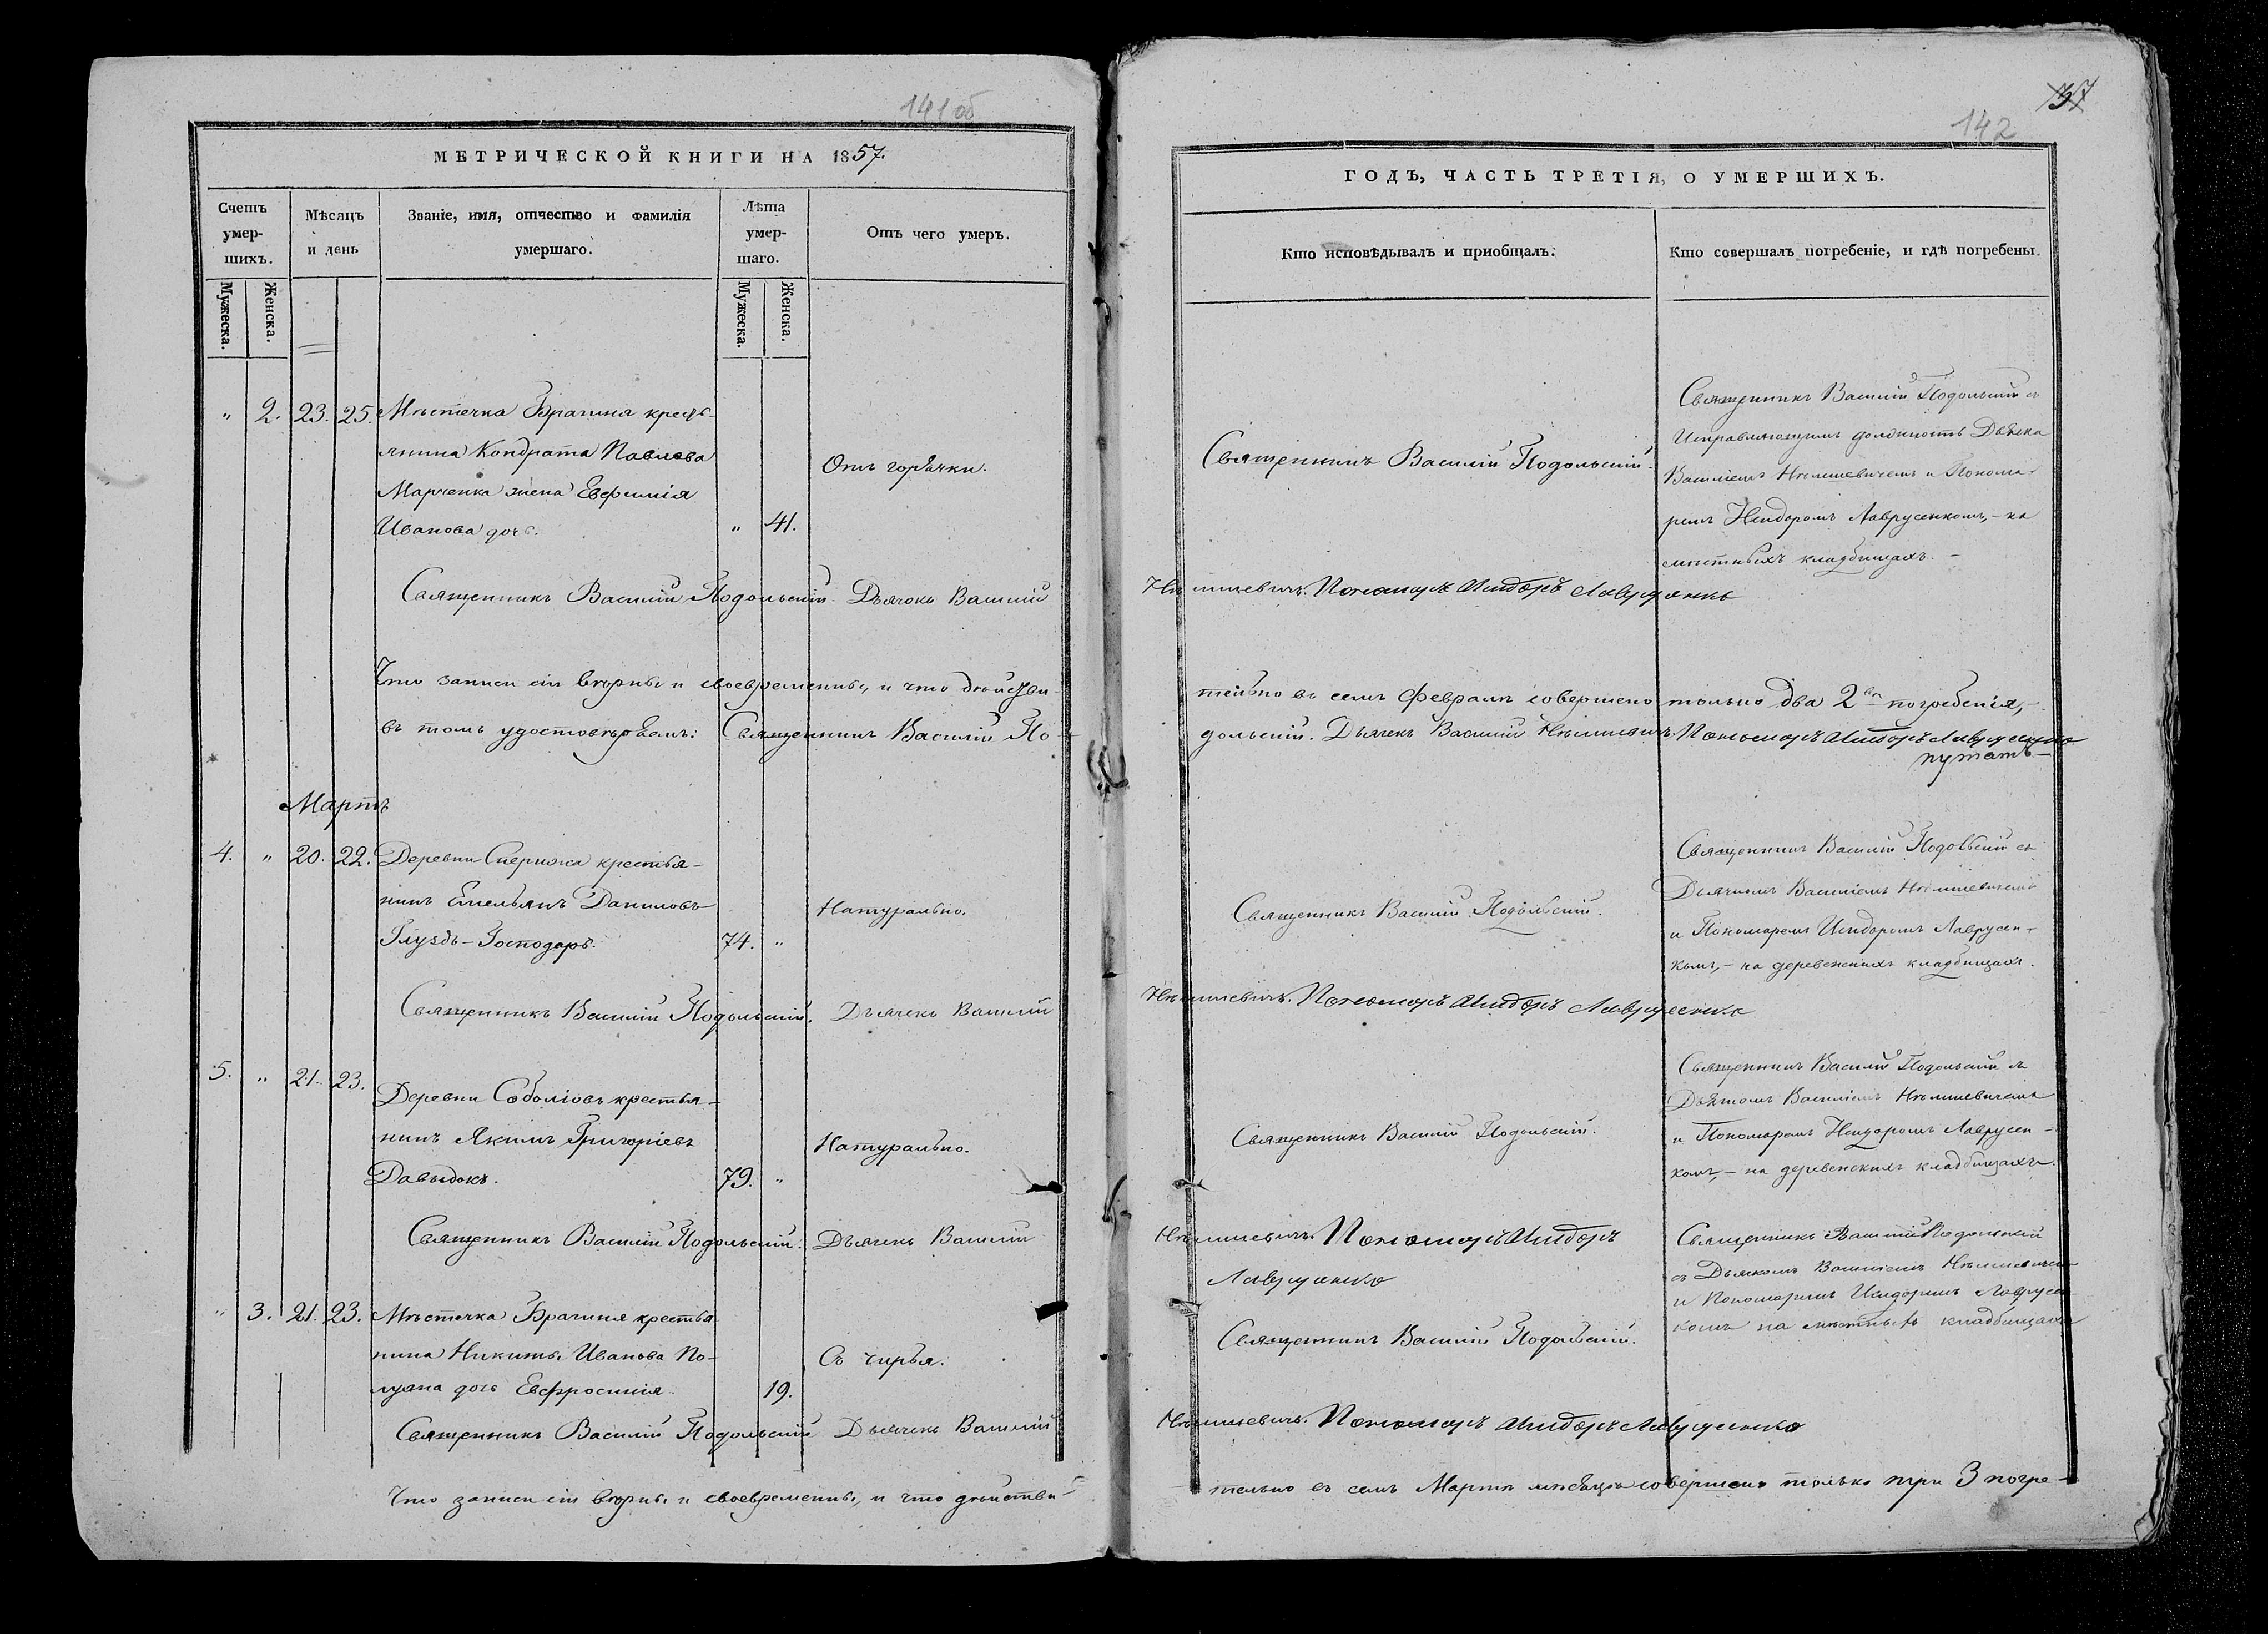 141 об
МЕТРИЧЕСКОЙ КНИГИ НА 1857.
Счетъ умер-шихъ.
Мѣсяцъ и день
Званіе, имя, отчество и фамилія умершаго.
Лѣта умер-шаго.
Отъ чего умеръ.
Мужеска.
Женска.
Мужеска.
Женска.
" 2. 23. 25. Мѣстечка Брагиня кресть-
янина Кондрата Павлова
Марченка жена Евфимія
Иванова дочь. " 41.
Отъ горячки.
Священникъ Василій Подольскій. Дьячокъ Василій
Что записи сіи вѣрны и своевременны, и что дѣйстви-
въ томъ удостовѣряемъ: Священникъ Василій По-
Мартъ
4. " 20. 22. Деревни Сперижа крестья-
нинъ Емельянъ Даниловъ
Глуздъ – Господарь. 74. "
Натурально.
Священникъ Василій Подольскій. Дьячекъ Василій
5. " 21. 23.
Деревни Соболіовъ крестья-
нинъ Якимъ Григоріевъ
Давыдокъ. 79. "
Натурально.
Священникъ Василій Подольскій. Дьячекъ Василій
" 3. 21. 23. Мѣстечка Брагиня крестья
нина Никиты Иванова По-
луяна дочь Евфросинія 19.
Съ чирья.
Священникъ Василій Подольскій Дьячекъ Василій
Что записи сіи вѣрны и своевременны, и что дѣйстви-
37
142
ГОДЪ, ЧАСТЬ ТРЕТІЯ, О УМЕРШИХЪ.
Кто исповѣдывалъ и приобщалъ.
Кто совершалъ погребеніе, и гдѣ погребены.
Священникъ Василій Подольскій.
Священникъ Василій Подольскій съ
Исправляющимъ должность Дьячка
Василіемъ Нѣмшевичемъ и Понома-
ремъ Исидоромъ Лаврусенкомъ, – на
мѣстныхъ кладбищахъ. –
Нѣмшевичъ. Пономарь Исидоръ Лаврусенко
тельно въ семъ Февралѣ совершено только два 2 погребенія, –
дольскій. Дьячекъ Василій Нѣмшевичъ. Пономарь Исидоръ Лаврусенко
Священникъ Василій Подольскій.
Священникъ Василій Подольскій съ
Дьячкомъ Василіемъ Нѣмшевичемъ
и Пономаремъ Исидоромъ Лаврусен-
комъ, – на деревенскихъ кладбищахъ.
Нѣмшевичъ. Пономарь Исидоръ Лаврусенко
Священникъ Василій Подольскій.
Священникъ Василій Подольскій съ
Дьячкомъ Василіемъ Нѣмшевичемъ
и Пономаремъ Исидоромъ Лаврусен-
комъ, – на деревенскихъ кладбищахъ.
Нѣмшевичъ. Пономарь Исидоръ
Лаврусенко
Священникъ Василій Подольскій.
Священникъ Василій Подольскій
съ Дьячкомъ Василіемъ Нѣмшевичем
и Пономаремъ Исидоромъ Лаврусен
комъ на мѣстныхъ кладбищахъ
Нѣмшевичъ. Пономарь Исидоръ Лаврусенко
тельно въ семъ Мартѣ мѣсяцѣ совершено только три 3 погре-